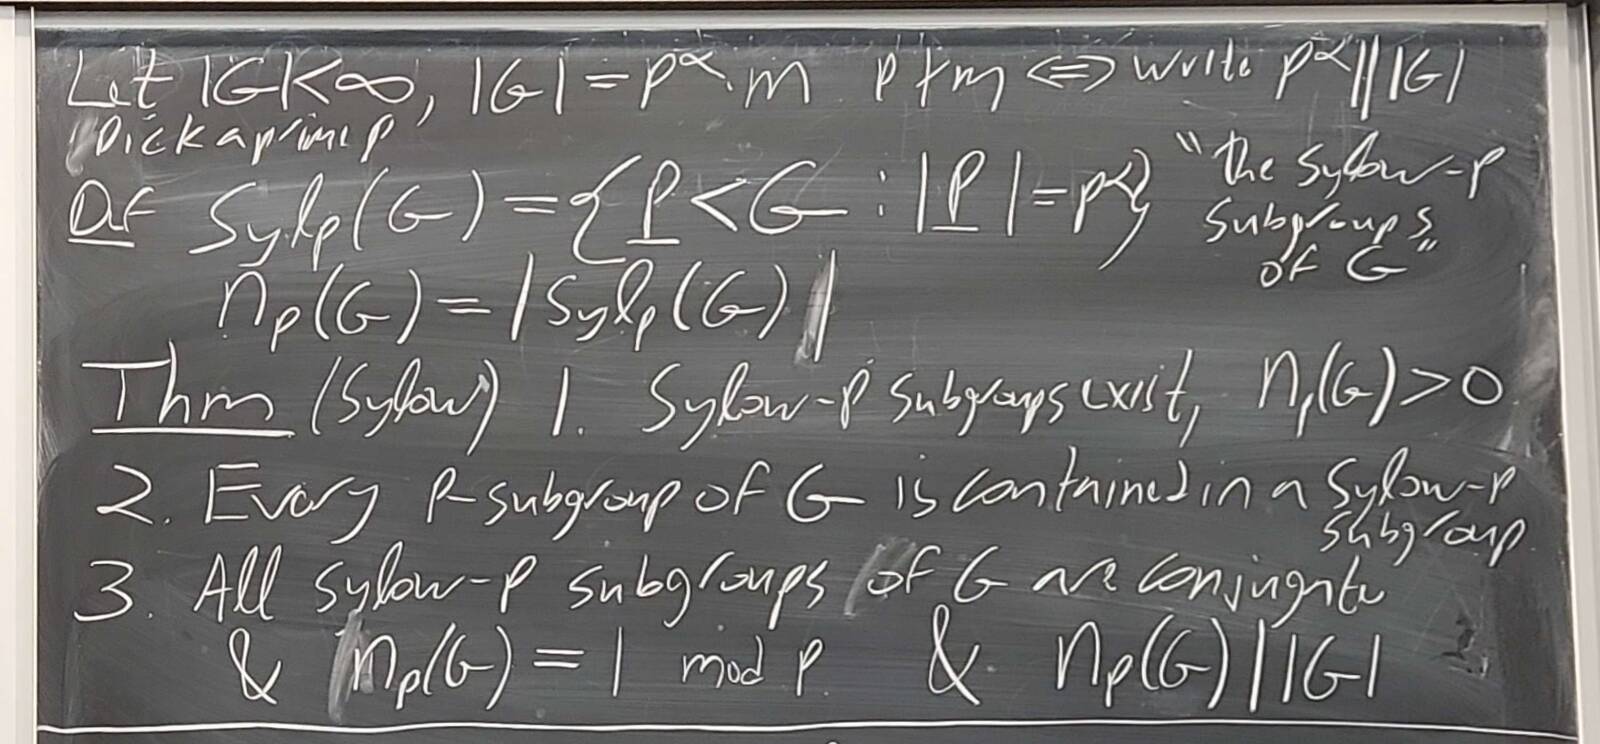 Let |G|<∞, |G| = p^α · m p∤m ⇔ write p^α || |G|
Pick a prime p
Def Syl_p(G) = {P < G : |P| = p^α} "the Sylow-p
subgroups
of G"
n_p(G) = |Syl_p(G)|
Thm (Sylow) 1. Sylow-p subgroups exist, n_p(G) > 0
2. Every p-subgroup of G is contained in a Sylow-p
subgroup
3. All Sylow-p subgroups of G are conjugate
& n_p(G) = 1 mod p & n_p(G) | |G|